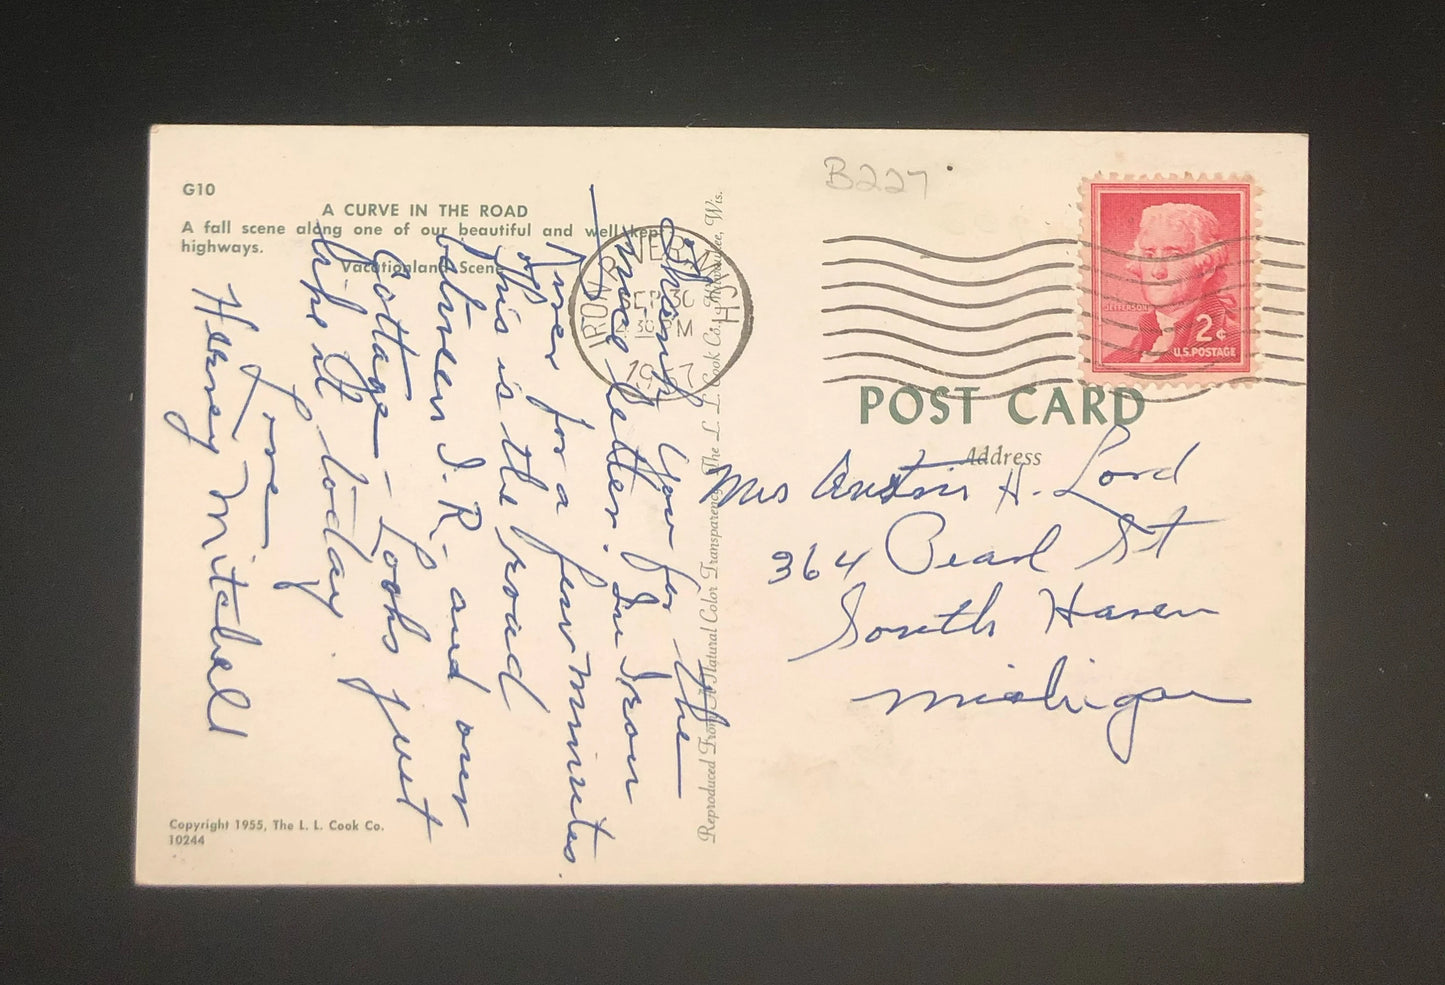 G10
A CURVE IN THE ROAD
A fall scene along one of our beautiful and well kept
highways.
Vacationland Scene
Thank you for the
nice letter. In Iron
River for a few minutes.
This is the road
between I.R. and our
Cottage - Looks just
like it today.
Love
Harvey Mitchell
Copyright 1955, The L. L. Cook Co.
10244
Reproduced From A Natural Color Transparency, The L. L. Cook Co., Milwaukee, Wis.
IRON RIVER MICH
SEP 30
30 PM
1957
B227
JEFFERSON
2¢
U.S. POSTAGE
POST CARD
Address
Mrs Austin H. Lord
364 Pearl St
South Haven
Michigan